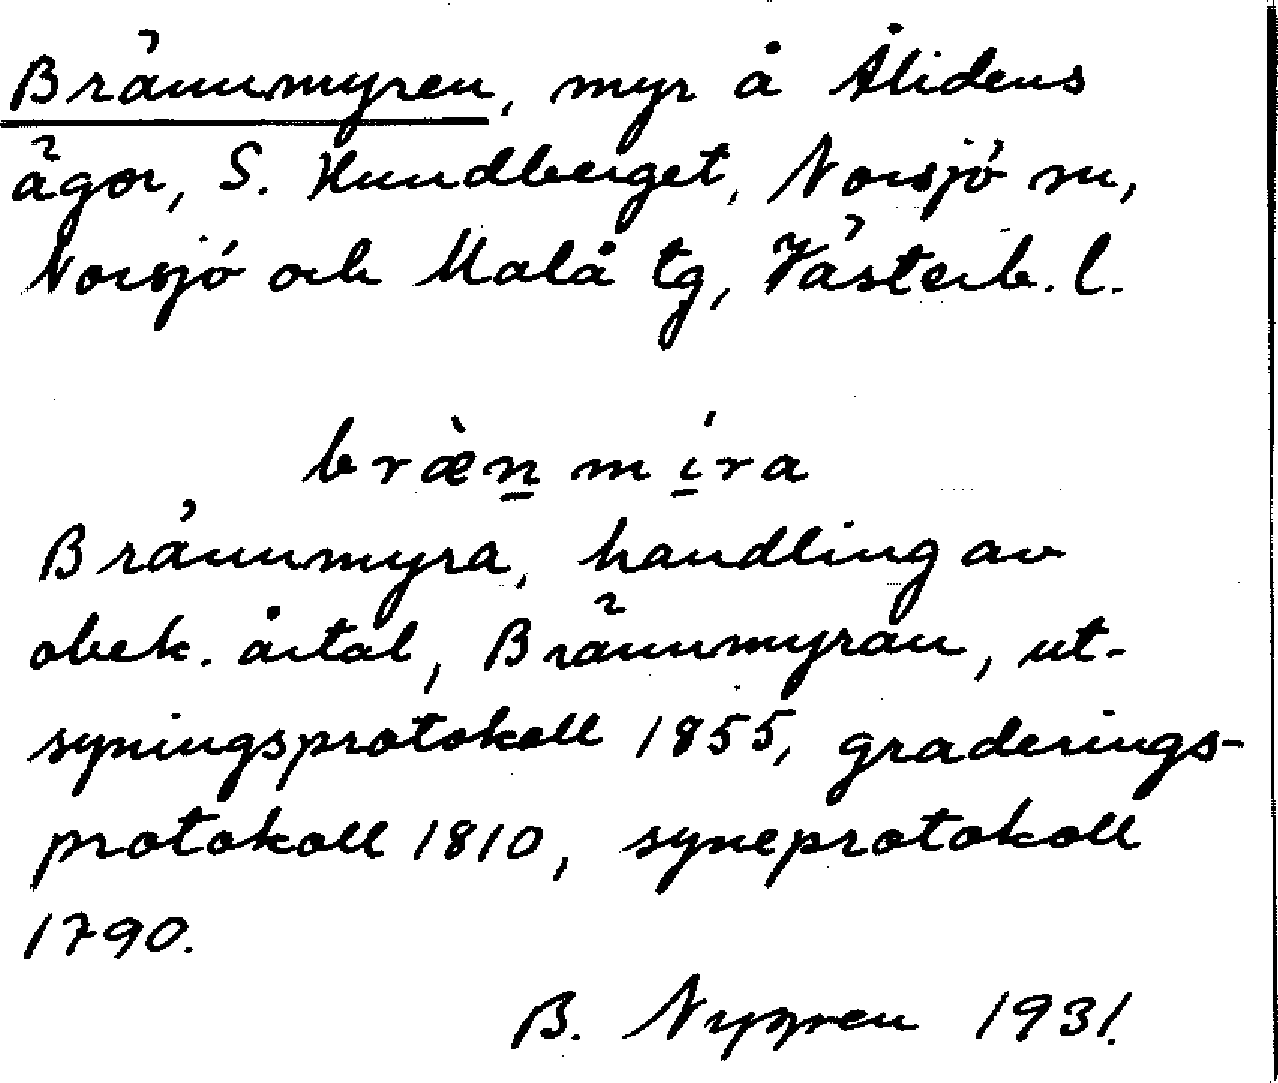 Brännmyren, myr å Ålidens
ägor, S. Hundberget, Norsjö sn,
Norsjö och Malå tg, Västerb. l.
bræ̀n̲ mí̲ra
Brännmyra, handling av
obek. årtal, Brännmyran, ut-
syningsprotokoll 1855, graderings-
protokoll 1810, syneprotokoll
1790.
B. Nygren 1931.